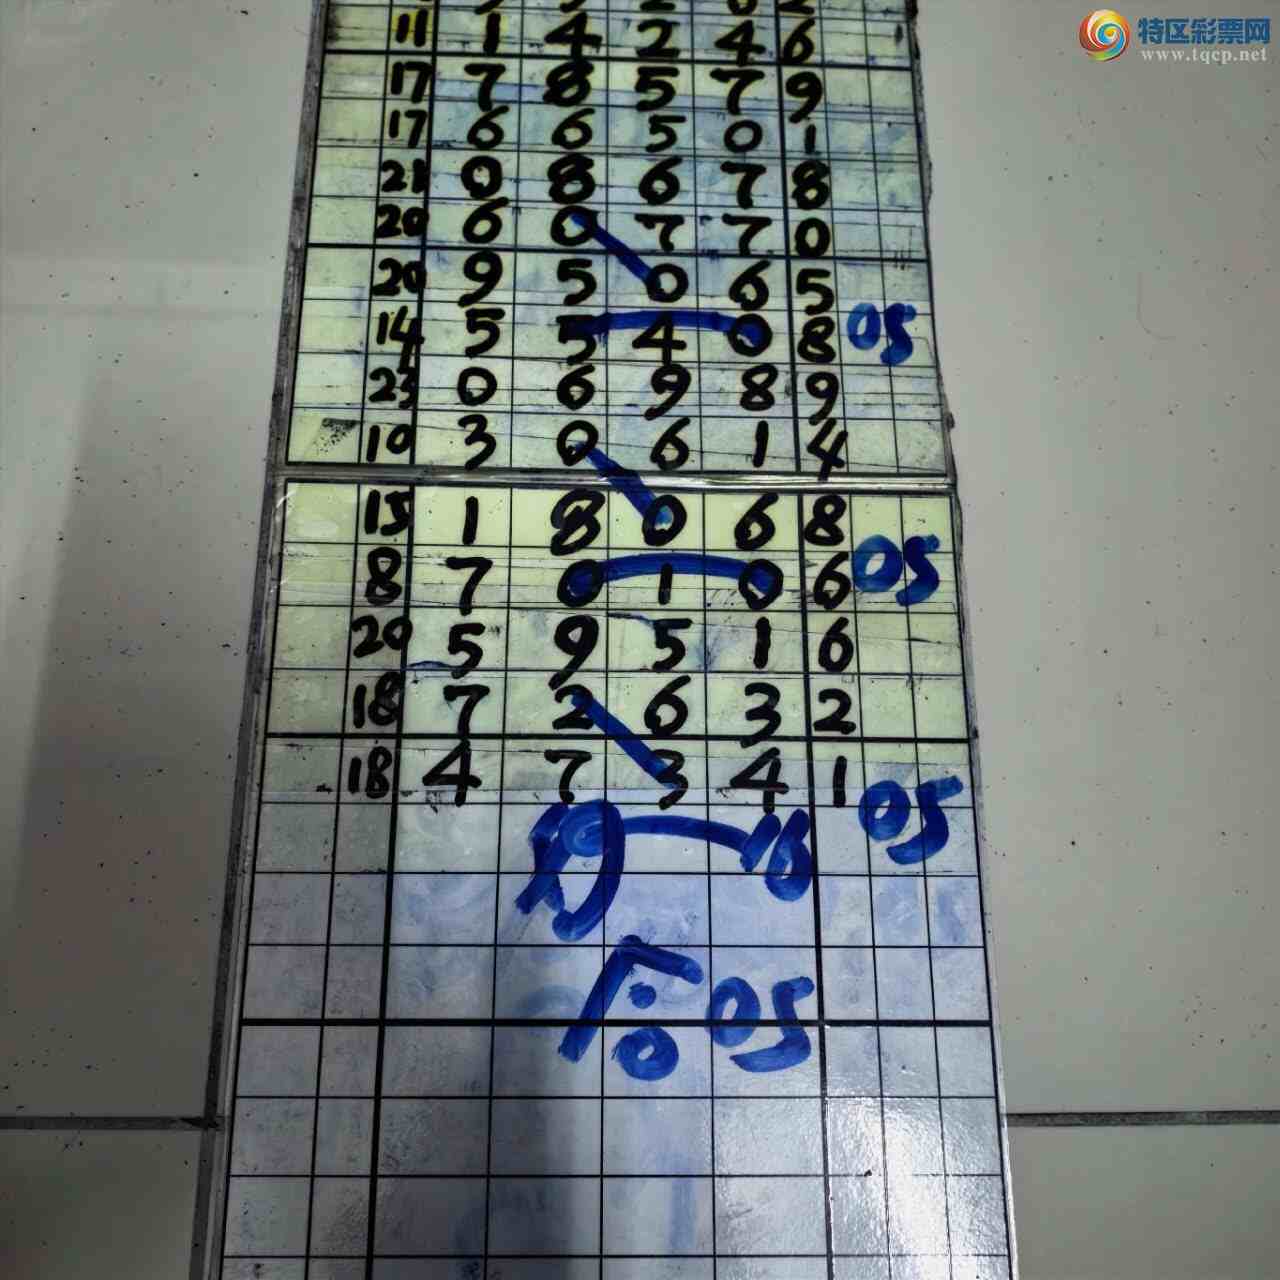 特区彩票网
www.tqcp.net
11 1 4 2 4 6
17 7 8 5 7 9
17 6 6 5 0 1
21 0 8 6 7 8
20 6 0 7 7 0
20 9 5 0 6 5
14 5 5 4 0 8 05
23 0 6 9 8 9
10 3 0 6 1 4
15 1 8 0 6 8
8 7 0 1 0 6 05
20 5 9 5 1 6
18 7 2 6 3 2
18 4 7 3 4 1 05
05